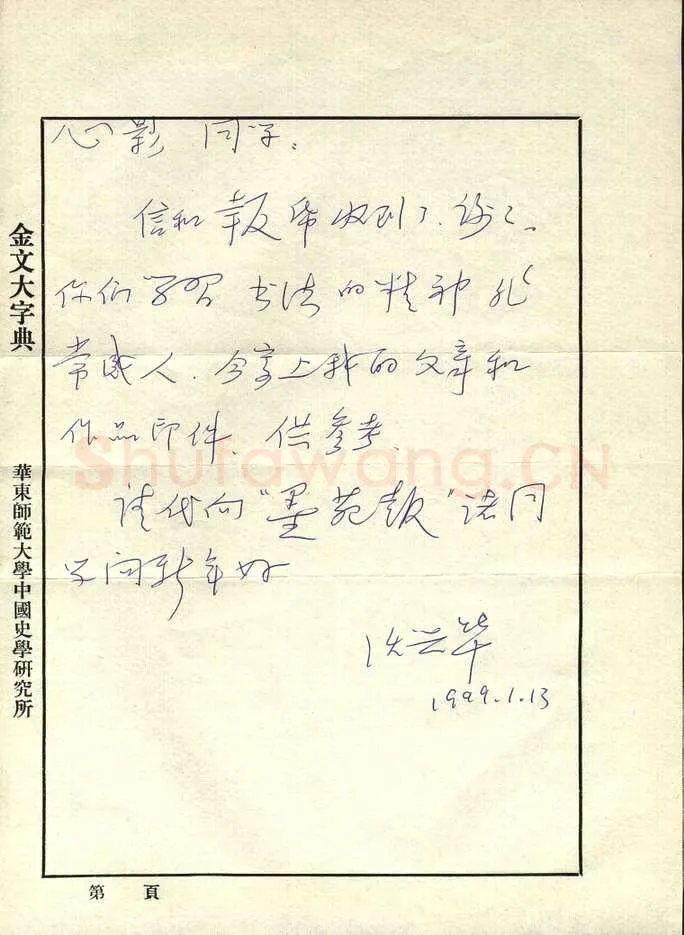 心影同学：
信和报纸收到了，谢谢。
你们学习书法的精神非
常感人，今寄上我的文章和
作品印件、供参考。
请代向“墨苑报”诸同
学问新年好
1999.1.13
金文大字典
華東師範大學中國史學研究所
第 頁
Shufawang.CN